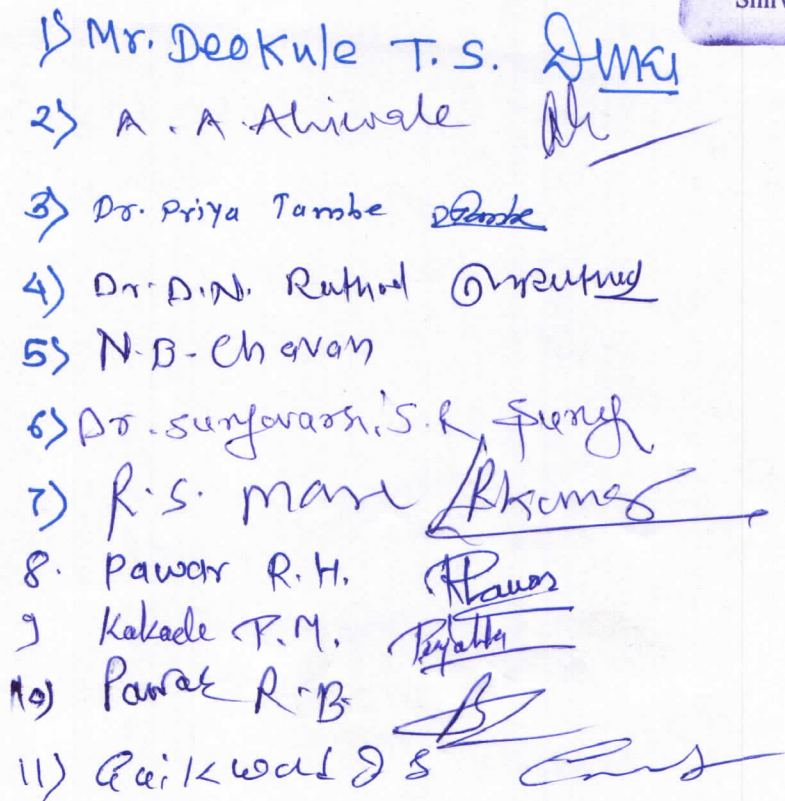 1) Mr. Deokule T. S.
2) A. A. Ahiwale
3) Dr. Priya Tambe
4) Dr. D.N. Rathod
5) N.B. Chavan
6) Dr. Suryavanshi S.R.
7) R.S. Mane
8. Pawar R.H. RHPawar
9 Kakade P.M.
10) Pawar R.B.
11) Gaikwad D S